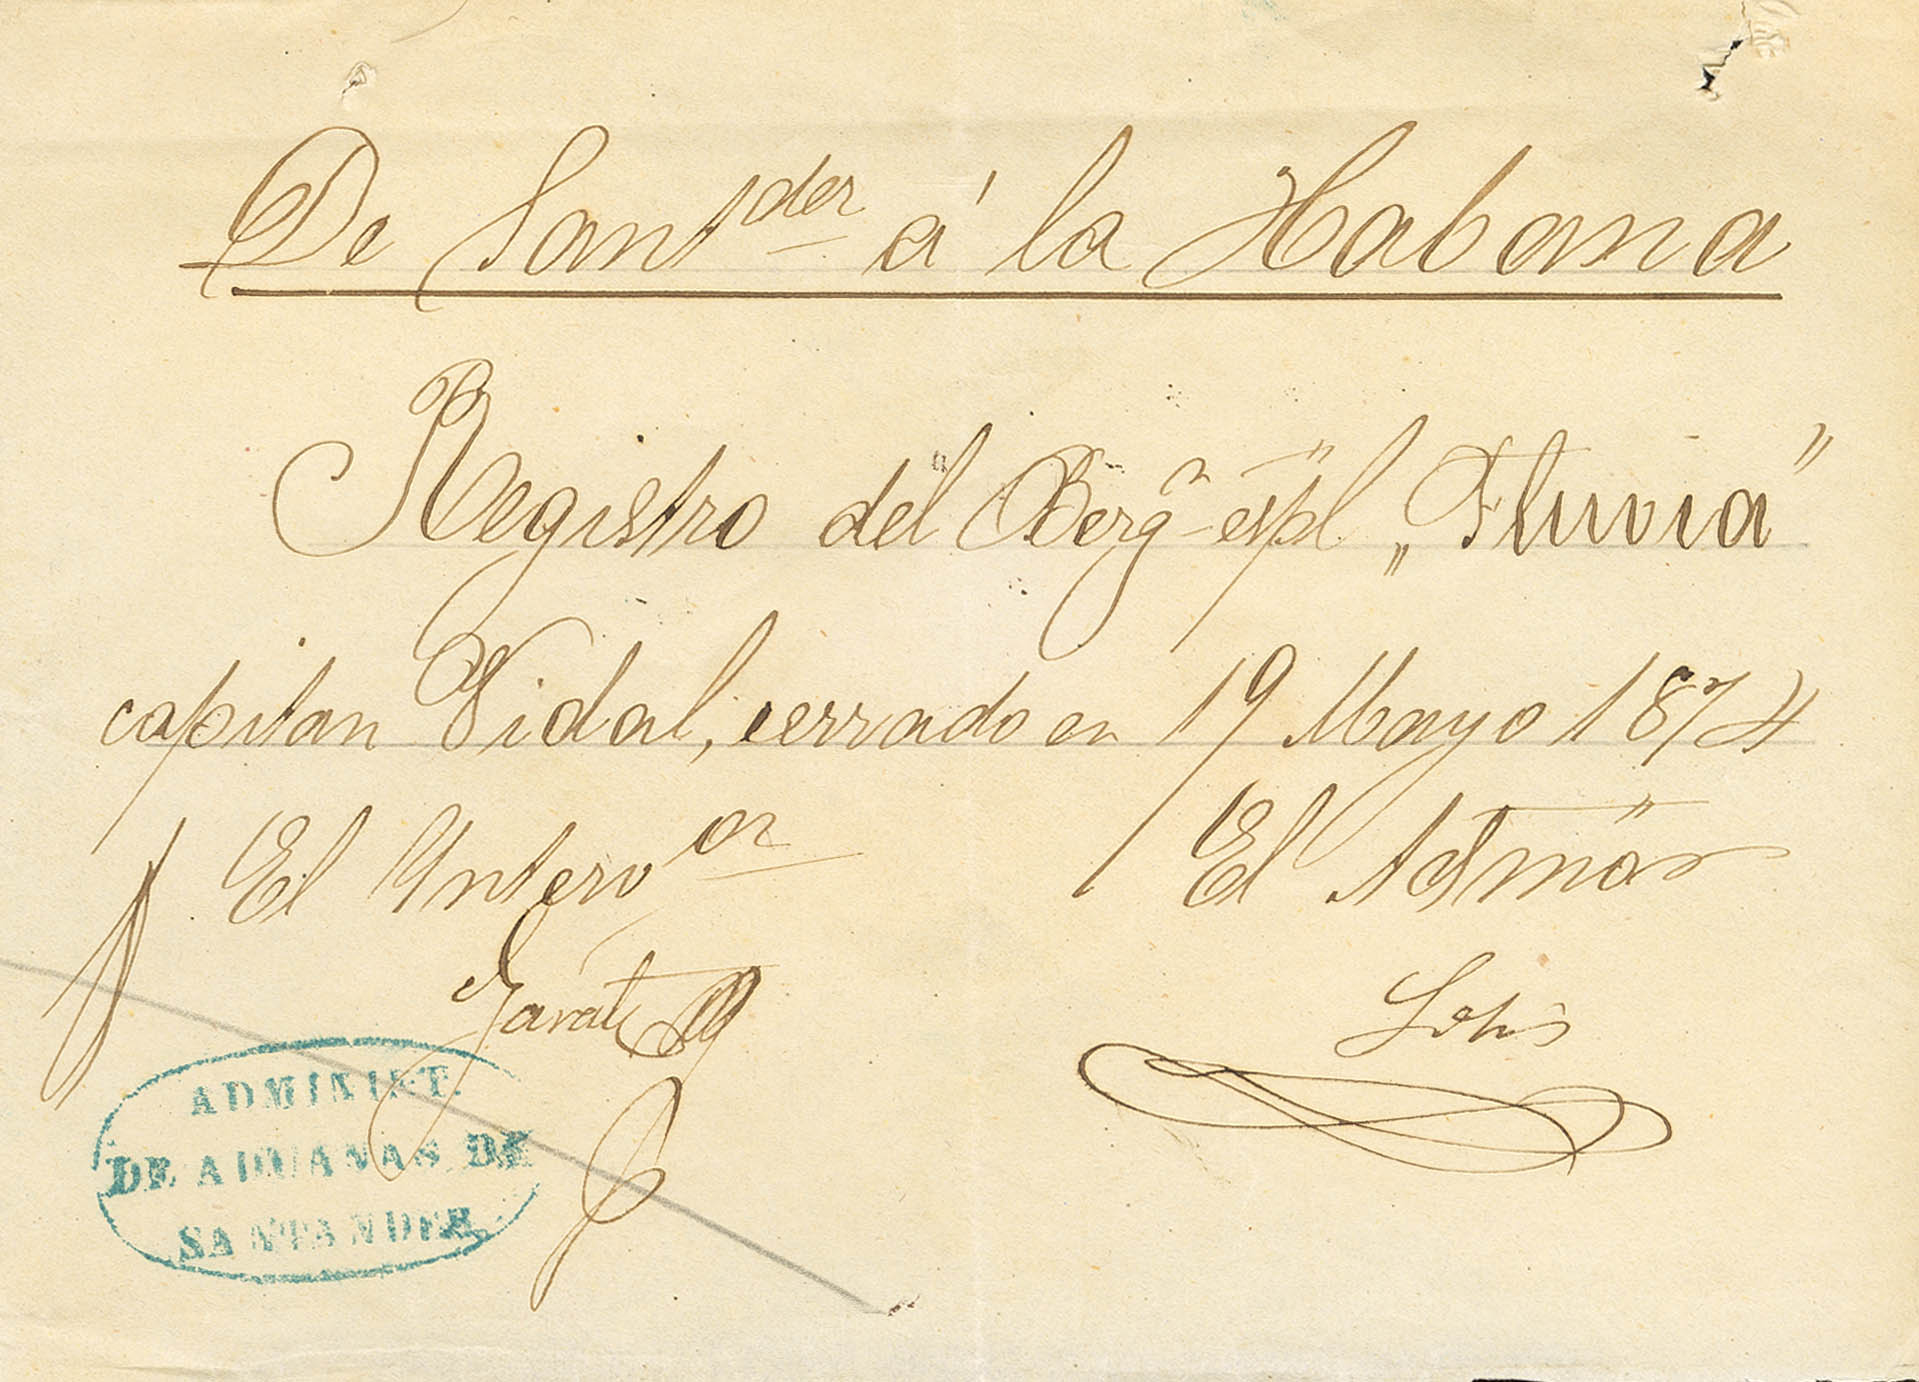 De Sant^der á la Habana
Registro del Berg^n esp^l „Fluvia"
capitan Vidal, cerrado en 19 Mayo 1874
El Interv^or El Admor
Zarate
ADMINIST.
DE ADUANAS DE
SANTANDER.